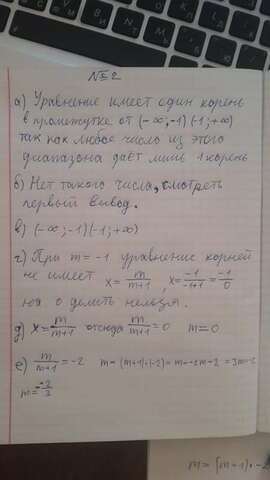 № 2
а) Уравнение имеет один корень
в промежутке от (-∞;-1)(-1;+∞)
так как любое число из этого
диапазона даёт лишь 1 корень
б) Нет такого числа, смотреть
первый вывод.
в) (-∞;-1)(-1;+∞)
г) При m = -1 уравнение корней
не имеет x = m/m+1, x = -1/-1+1 = -1/0
на 0 делить нельзя.
д) x = m/m+1 отсюда m/m+1 = 0 m = 0
е) m/m+1 = -2 m = (m+1)·(-2) = m = -2m-2 = 3m = -2
m = -2/3
m = (m+1)·-2